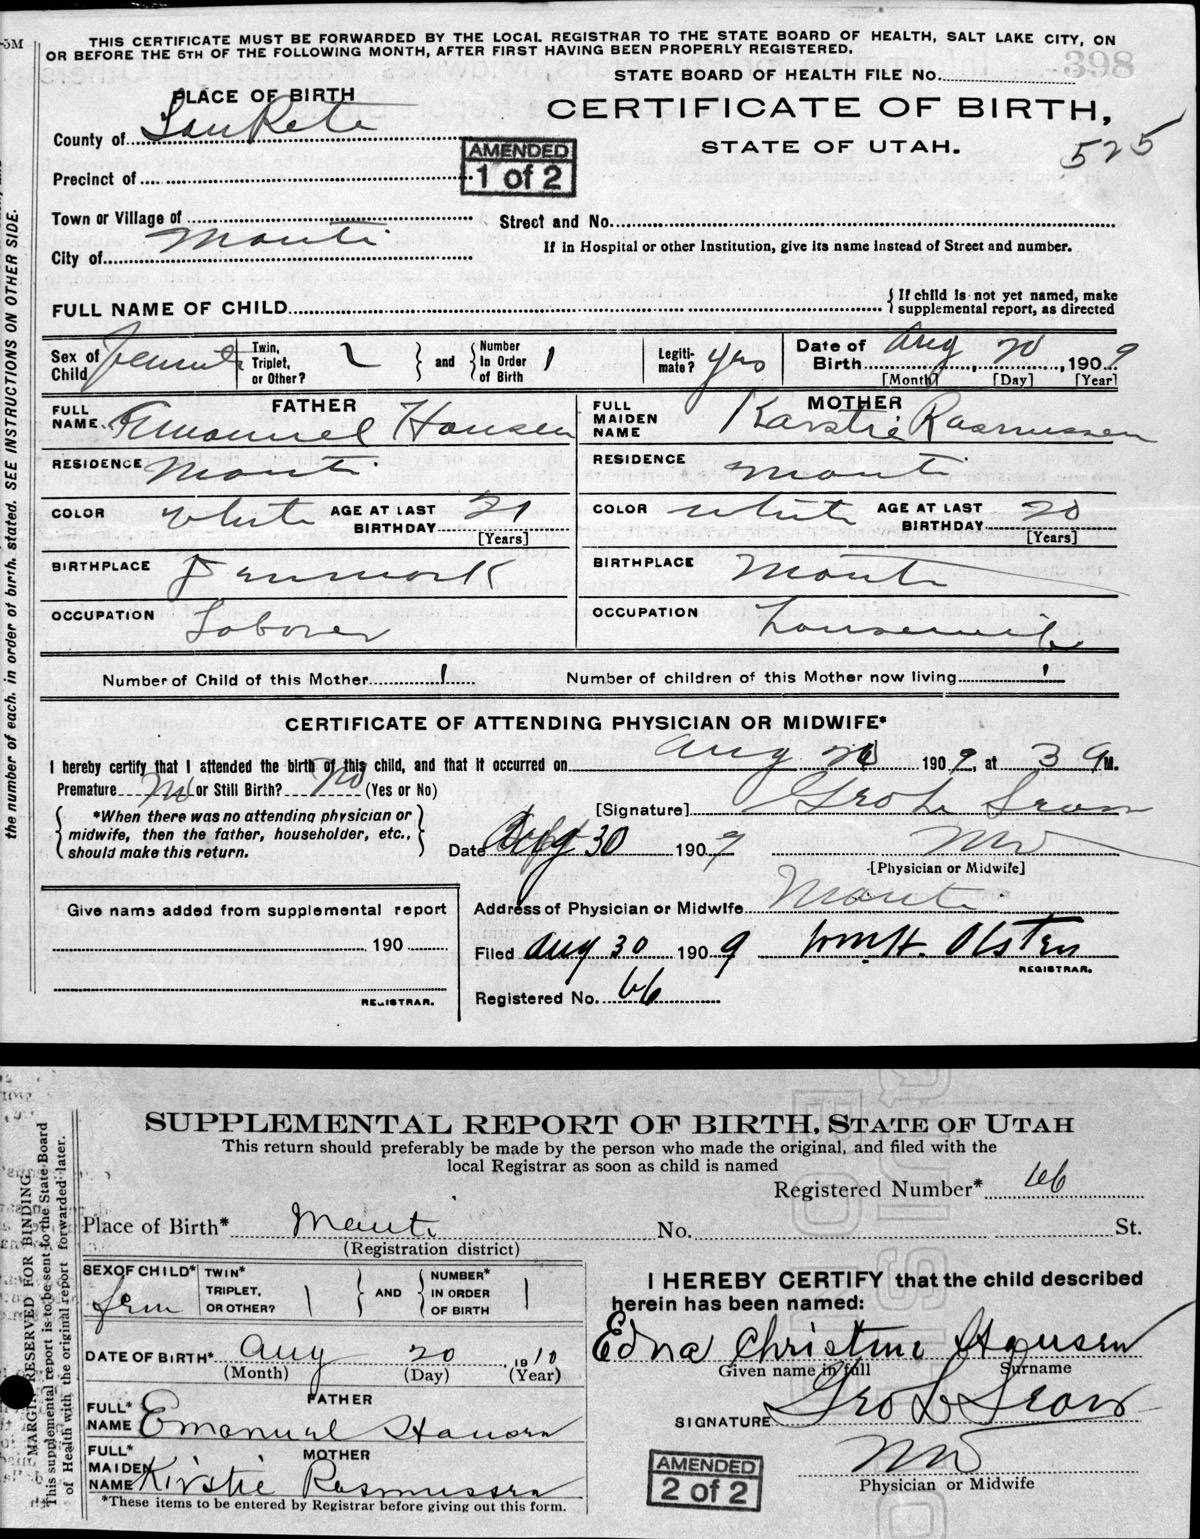 -5M
THIS CERTIFICATE MUST BE FORWARDED BY THE LOCAL REGISTRAR TO THE STATE BOARD OF HEALTH, SALT LAKE CITY, ON
OR BEFORE THE 5TH OF THE FOLLOWING MONTH, AFTER FIRST HAVING BEEN PROPERLY REGISTERED.
STATE BOARD OF HEALTH FILE No. 398
PLACE OF BIRTH
CERTIFICATE OF BIRTH,
County of SanPete
STATE OF UTAH.
525
AMENDED
1 of 2
Precinct of
Town or Village of
Street and No.
City of Manti
If in Hospital or other Institution, give its name instead of Street and number.
FULL NAME OF CHILD {If child is not yet named, make supplemental report, as directed
Sex of Child Female Twin, Triplet, or Other? 2 and Number In Order of Birth 1 Legiti-mate? yes Date of Birth Aug 20, 1909
[Month] [Day] [Year]
FATHER MOTHER
FULL NAME. Emanuel Hansen FULL MAIDEN NAME Karstie Rasmussen
RESIDENCE Manti RESIDENCE Manti
COLOR White AGE AT LAST BIRTHDAY 21 [Years] COLOR White AGE AT LAST BIRTHDAY 20 [Years]
BIRTHPLACE Denmark BIRTHPLACE Manti
OCCUPATION Laborer OCCUPATION Housewife
Number of Child of this Mother 1 Number of children of this Mother now living 1
CERTIFICATE OF ATTENDING PHYSICIAN OR MIDWIFE*
I hereby certify that I attended the birth of this child, and that it occurred on Aug 20 1909, at 3 A M.
Premature No or Still Birth? No (Yes or No)
[Signature]
*When there was no attending physician or
midwife, then the father, householder, etc.,
should make this return.
Date Aug 30 1909 MD
[Physician or Midwife]
Give name added from supplemental report
Address of Physician or Midwife Manti
190
Filed Aug 30 1909 Wm H. Olsten
REGISTRAR.
REGISTRAR.
Registered No. 66
the number of each, in order of birth, stated. SEE INSTRUCTIONS ON OTHER SIDE.
SUPPLEMENTAL REPORT OF BIRTH, STATE OF UTAH
This return should preferably be made by the person who made the original, and filed with the
local Registrar as soon as child is named
Registered Number* 66
Place of Birth* Manti No. St.
(Registration district)
SEX OF CHILD* Fem TWIN* TRIPLET, OR OTHER? 1 AND NUMBER* IN ORDER OF BIRTH 1
I HEREBY CERTIFY that the child described
herein has been named:
Edna Christine Hansen
Given name in full Surname
DATE OF BIRTH* Aug 20, 1910
(Month) (Day) (Year)
FATHER
FULL* NAME Emanuel Hansen
SIGNATURE
MOTHER
FULL* MAIDEN NAME Kirstie Rasmussen
MD
Physician or Midwife
*These items to be entered by Registrar before giving out this form.
AMENDED
2 of 2
MARGIN RESERVED FOR BINDING.
This supplemental report is to be sent to the State Board
of Health with the original report forwarded later.